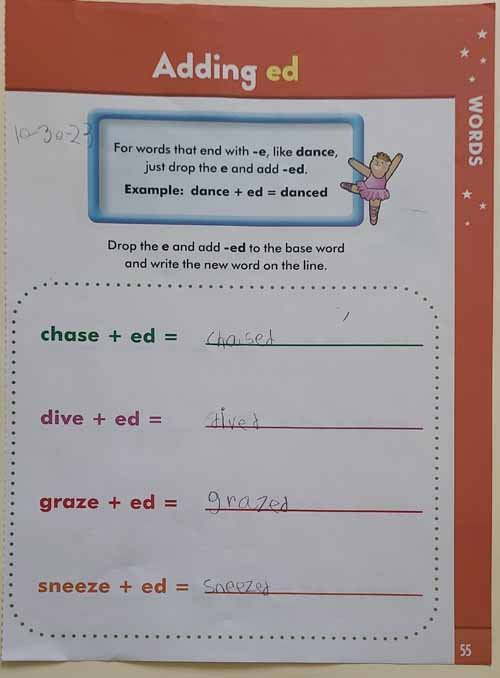 Adding ed
WORDS
10-30-23
For words that end with -e, like dance,
just drop the e and add -ed.
Example: dance + ed = danced
Drop the e and add -ed to the base word
and write the new word on the line.
chase + ed = chaised
dive + ed = dived
graze + ed = grazed
sneeze + ed = sneezed
55